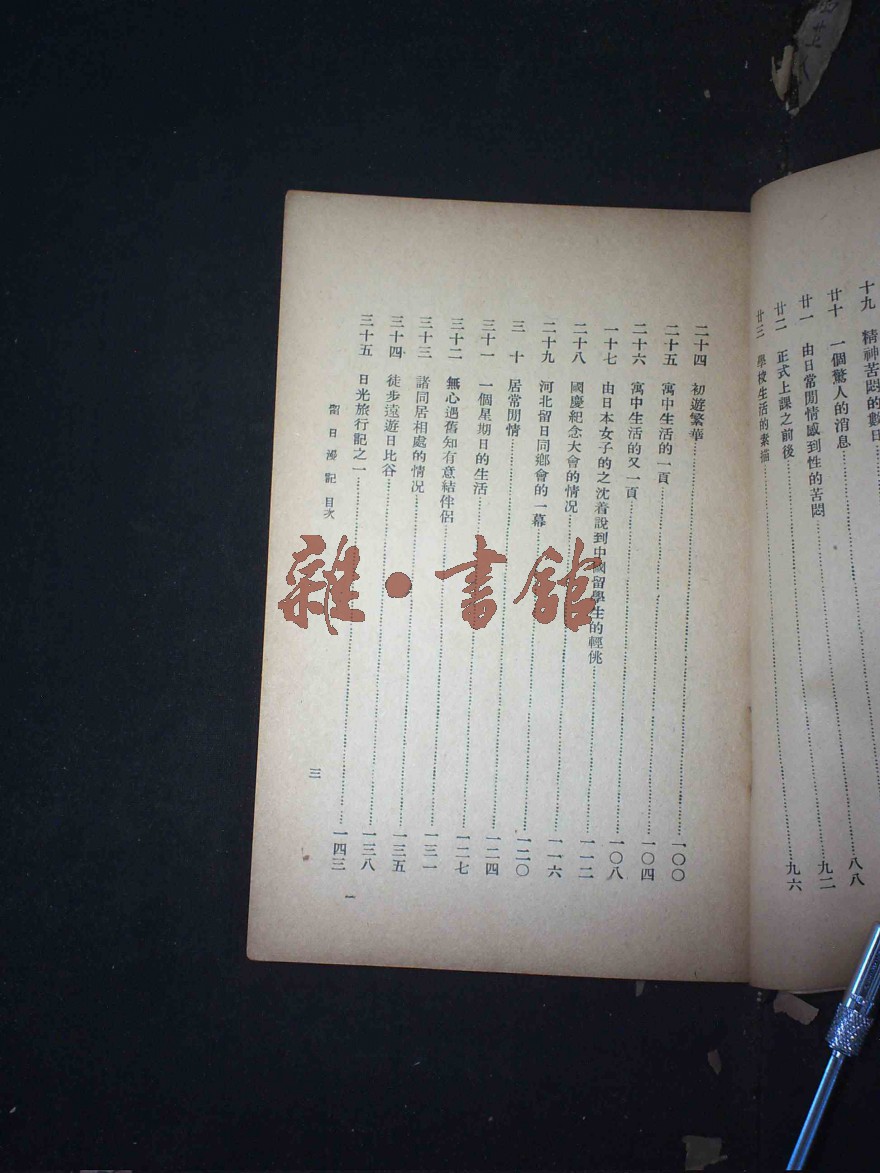 十九 精神苦悶的數日
廿十 一個驚人的消息……八八
廿一 由日常閒情感到性的苦悶……九二
廿二 正式上課之前後……九六
廿三 學校生活的素描……
二十四 初遊繁華……一〇〇
二十五 寓中生活的一頁……一〇四
二十六 寓中生活的又一頁……一〇八
一十七 由日本女子的之沈着說到中國留學生的輕佻……一一二
二十八 國慶紀念大會的情况……一一六
二十九 河北留日同鄉會的一幕……一二〇
三 十 居常閒情……一二四
三十一 一個星期日的生活……一二七
三十二 無心遇舊知有意結伴侶……一三一
三十三 諸同居相處的情况……一三五
三十四 徒步遠遊日比谷……一三八
三十五 日光旅行記之一……一四三
留日漫記 目次
三
一
雜·書館